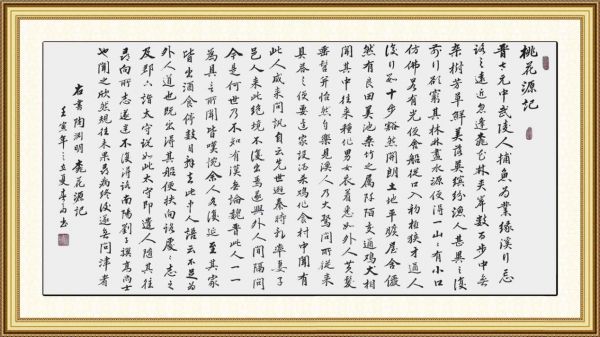 桃花源記
晋太元中武陵人捕魚为業缘溪行忘
路之遠近忽逢桃花林夹岸數百步中无
杂樹芳草鲜美落英缤纷渔人甚異之復
前行欲窮其林林盡水源便得一山山有小口
仿佛若有光便舍船從口入初极狭才通人
復行數十步豁然開朗土地平旷屋舍儼
然有良田美池桑竹之属阡陌交通鸡犬相
聞其中往来種作男女衣着悉如外人黄髮
垂髫并怡然自樂見渔人乃大驚問所從来
具答之便要還家設酒杀鸡作食村中聞有
此人咸来問訊自云先世避秦時乱率妻子
邑人来此绝境不復出焉遂與外人間隔問
今是何世乃不知有漢无論魏晋此人一一
為具言所聞皆嘆惋余人各復延至其家
皆出酒食停數日辞去此中人語云不足為
外人道也既出得其船便扶向路處處志之
及郡下詣太守説如此太守即遣人随其往
尋向所志遂迷不復得路南陽劉子驥高尚士
也聞之欣然規往未果尋病终後遂无問津者
右書陶渊明桃花源記
壬寅年之立夏